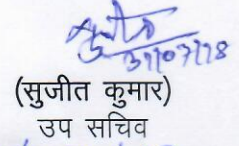 31/07/18
(सुजीत कुमार)
उप सचिव